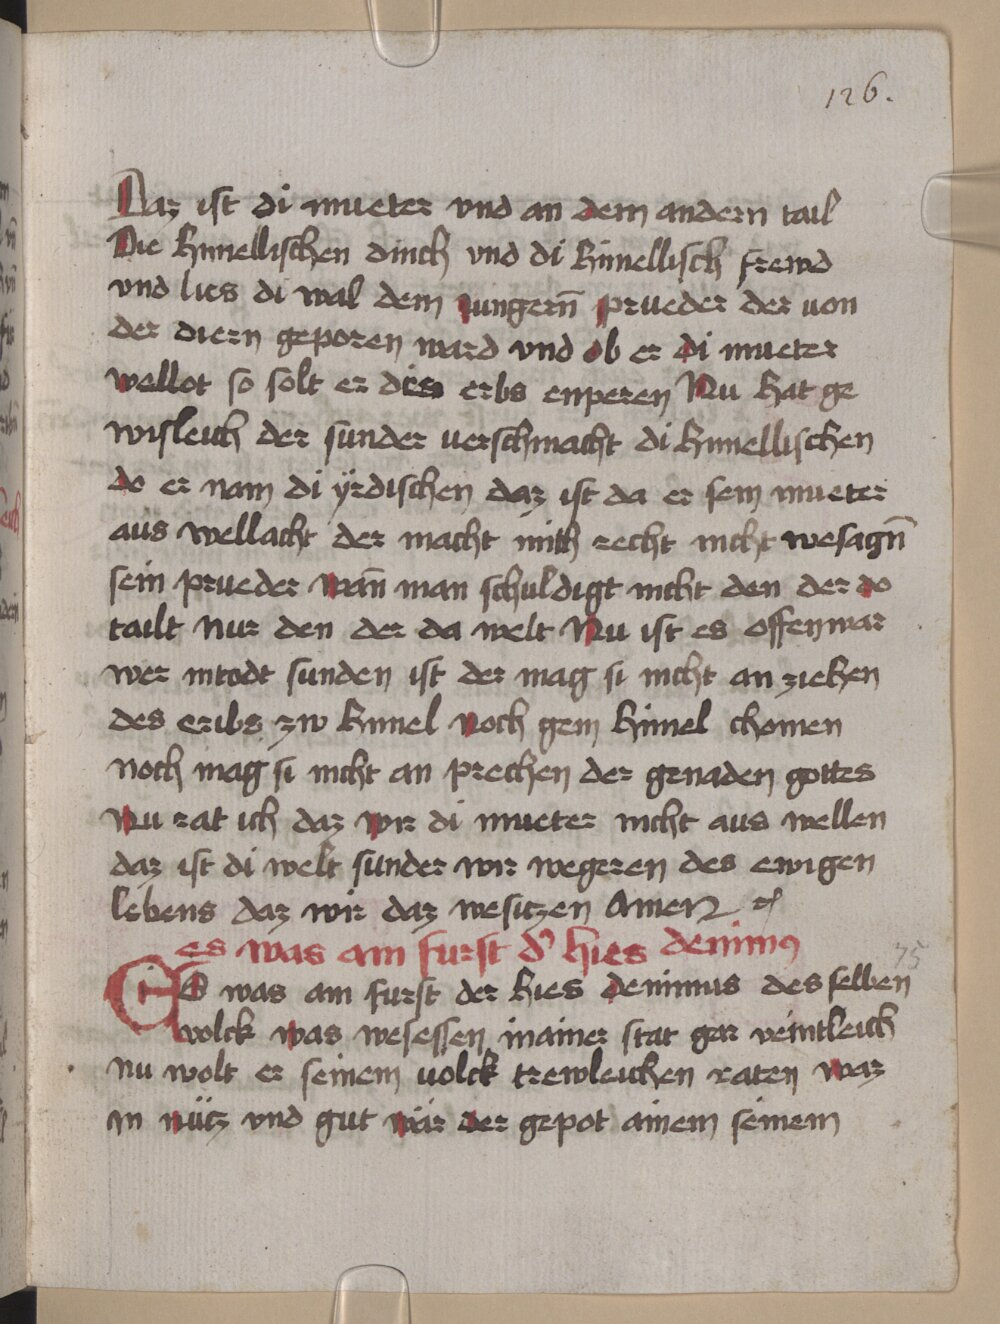 126.
Daz ist di mueter vnd an dem andern tail
Die himellischen dinch vnd di himellisch frewd
vnd lies di wal dem iungern̄ prueder der von
der diern geporen ward vnd ob er di mueter
wellot so solt er des erbs enperen Nu hat ge
wisleich der sunder uerschmacht di himellischen
do er nam di ÿrdischen daz ist da er sein mueter
aus wellacht der macht mith recht nicht wesagn̄
sein prueder wan̄ man schuldigt nicht den der do
tailt Nur den der da welt Nu ist es offenwar
wer intodt sunden ist der mag si nicht an ziehen
des eribs zw himel noch gein himel chomen
noch mag si nicht an prechen der genaden gottes
Nu rat ich daz wir di mueter nicht aus wellen
daz ist di welt sunder wir wegeren des ewigen
lebens daz wir daz wesitzen Amen
es was ain furst d̾ hies deninus
75
Es was ain furst der hies deninnus des selben
volck was wesessen inainer stat gar veintleich
nu wolt er seinem uolck trewleichen raten waz
in nücz vnd gut wär der gepot ainem seinem